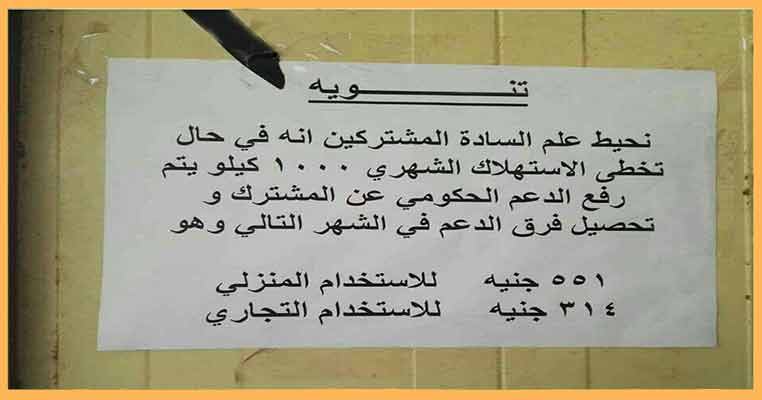 تنـــــــــويه
نحيط علم السادة المشتركين انه في حال
تخطى الاستهلاك الشهري ١٠٠٠ كيلو يتم
رفع الدعم الحكومي عن المشترك و
تحصيل فرق الدعم في الشهر التالي وهو
٥٥١ جنيه للاستخدام المنزلي
٣١٤ جنيه للاستخدام التجاري